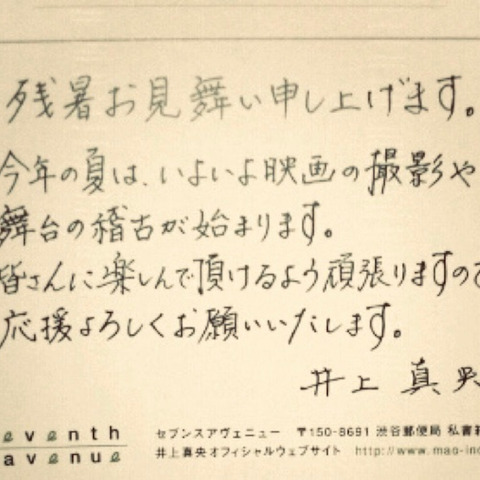 残暑お見舞い申し上げます。
今年の夏は、いよいよ映画の撮影や
舞台の稽古が始まります。
皆さんに楽しんで頂けるよう頑張りますので
応援よろしくお願いいたします。
井上 真央
eventh
avenue
セブンスアヴェニュー 〒150-8691 渋谷郵便局 私書箱
井上真央オフィシャルウェブサイト http://www.mao-ino